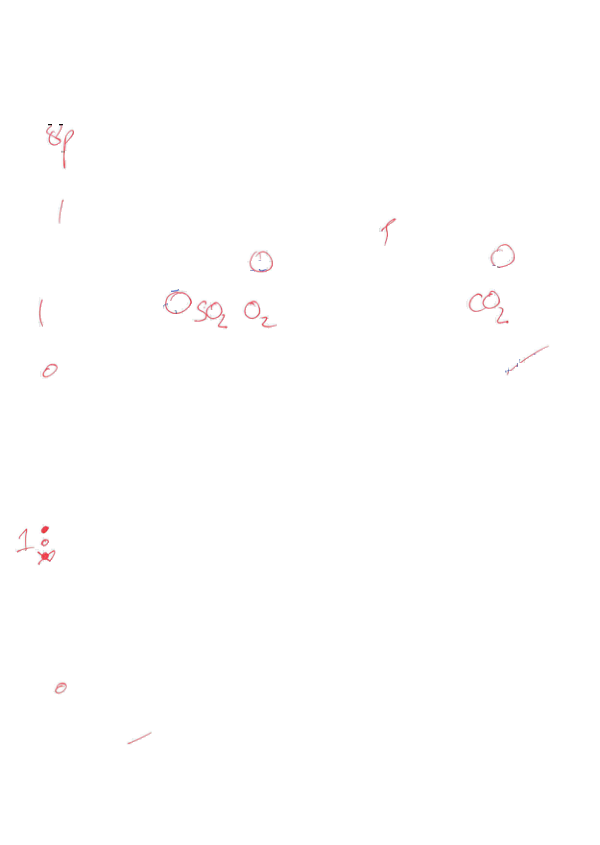 8p
1
1 SO₂ O₂ CO₂
0
1
0